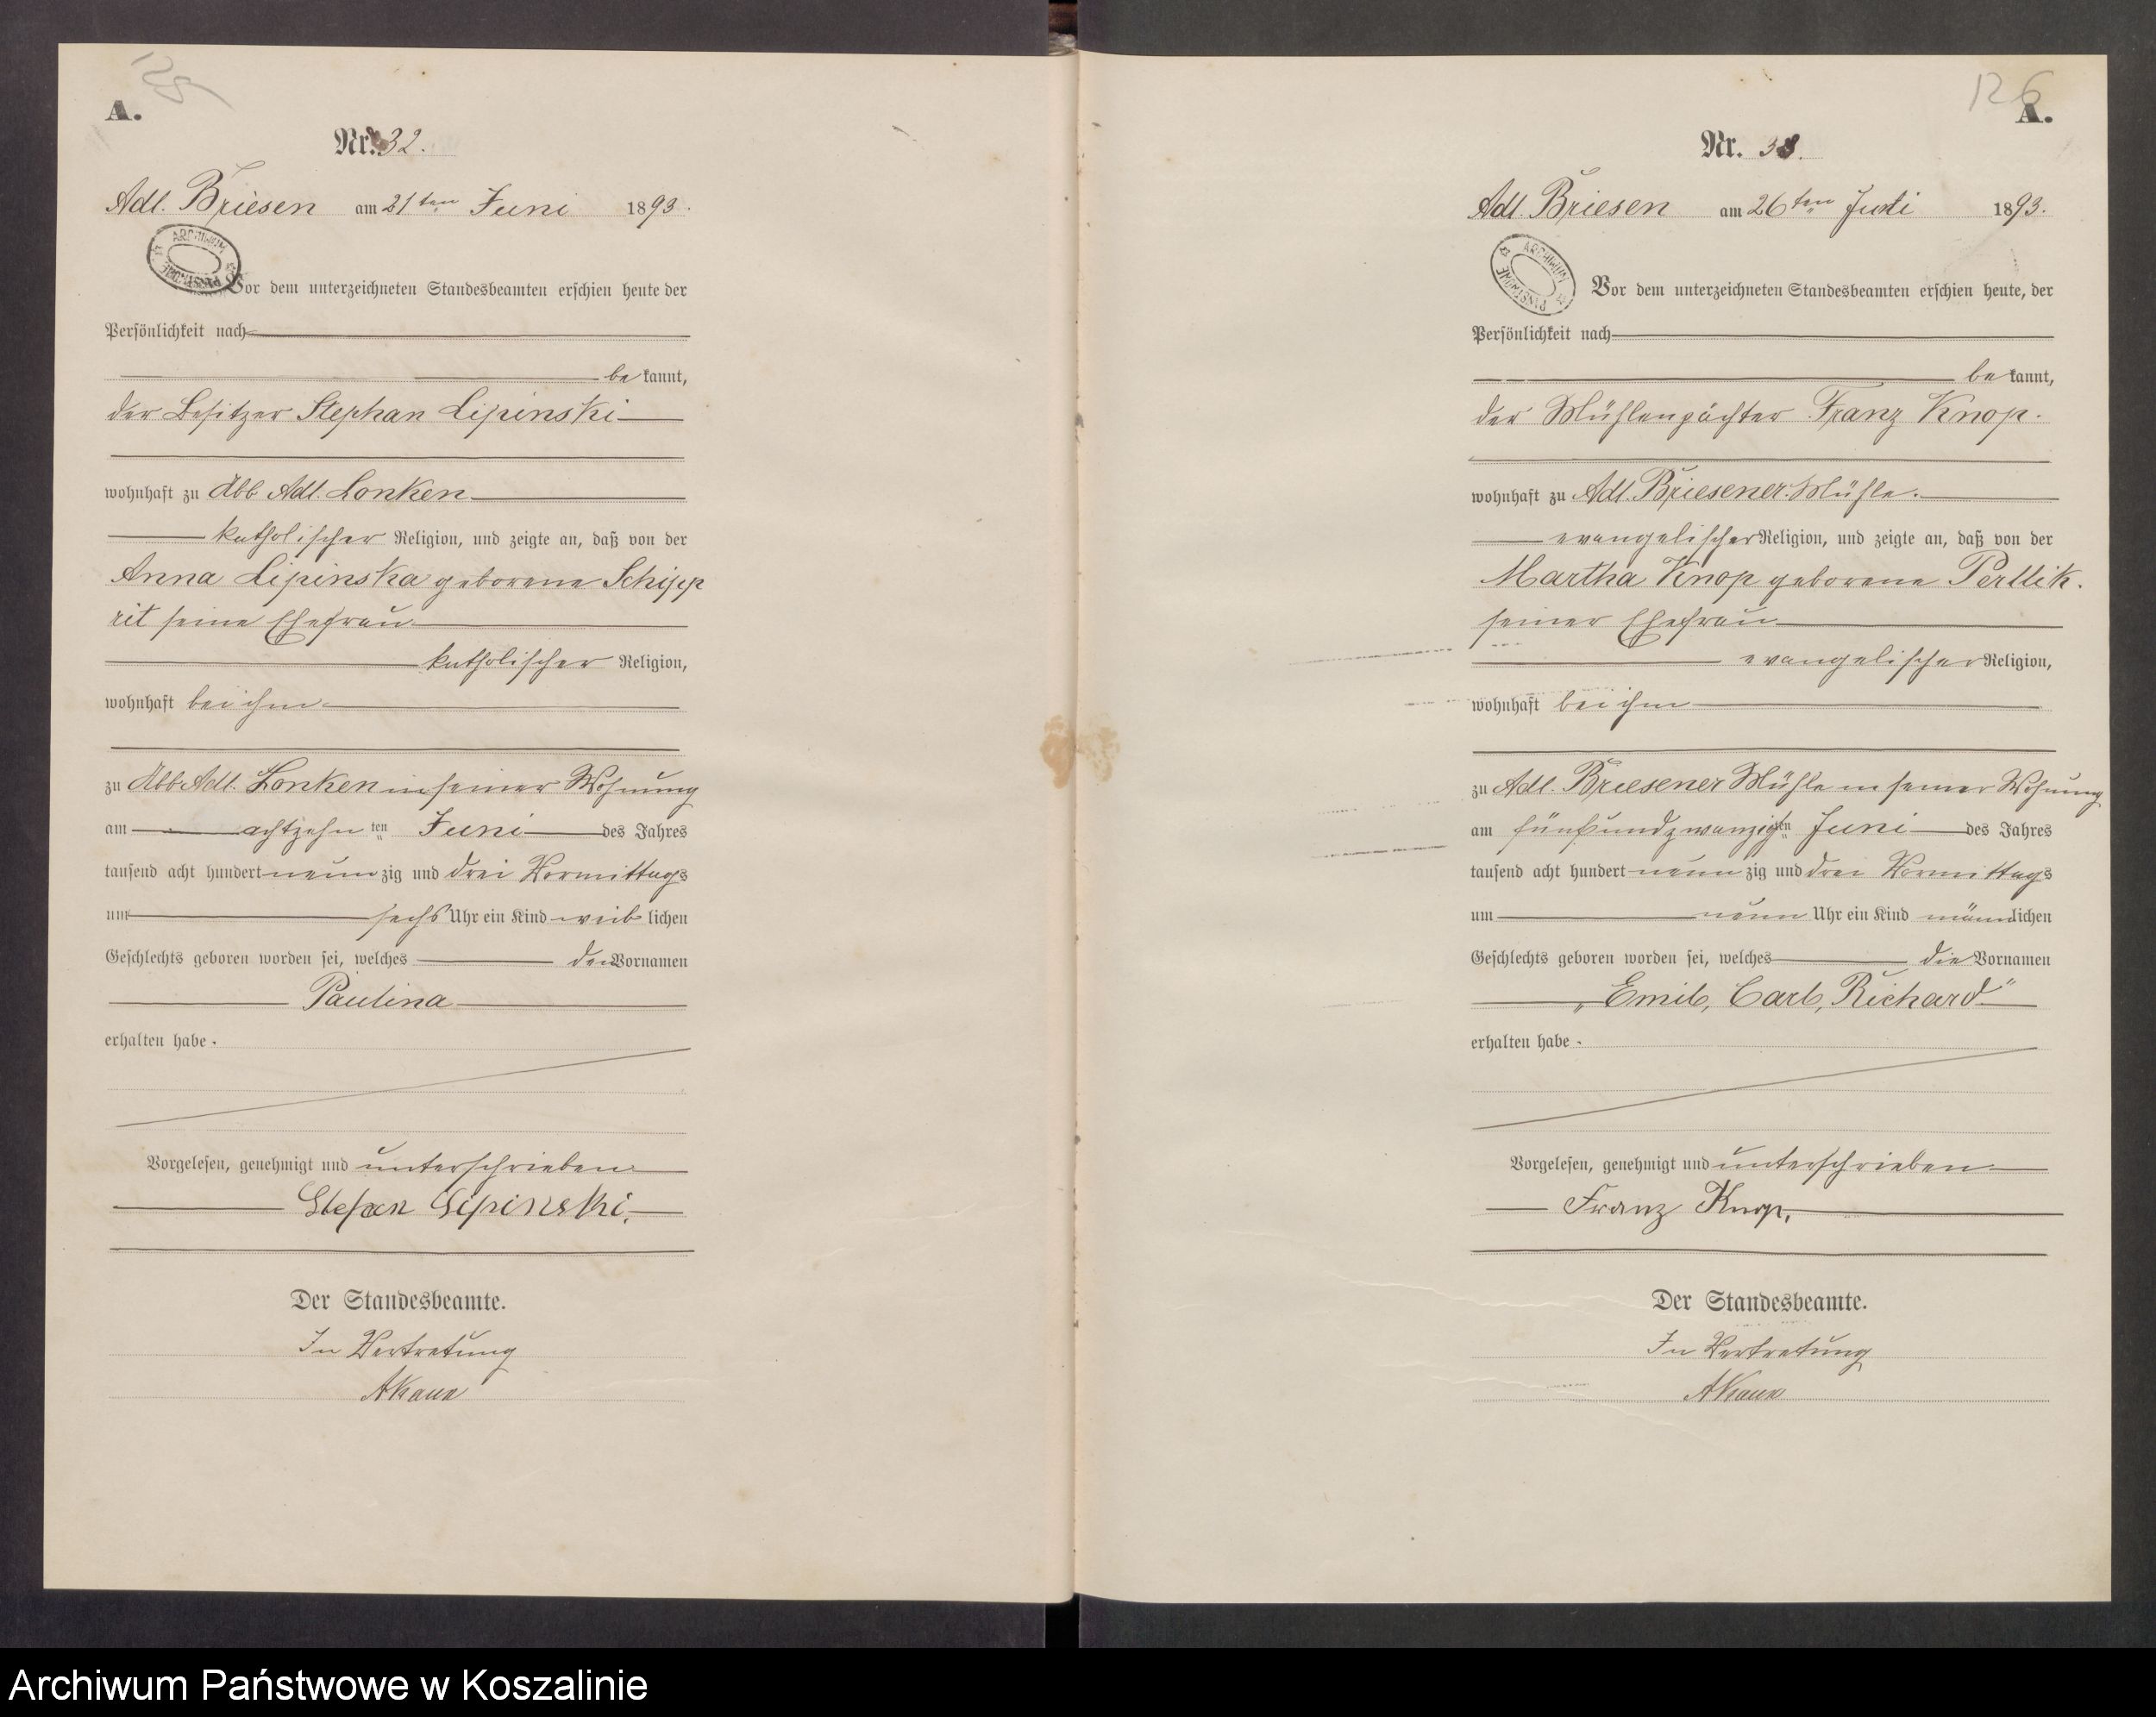 A.
Nr. 32.
Adl. Briesen am 21ten Juni 1893.
ARCHIWUM
Vor dem unterzeichneten Standesbeamten erschien heute, der
Persönlichkeit nach
be kannt,
der Besitzer Stephan Lipinski
wohnhaft zu Abb Adl. Lonken
katholischer Religion, und zeigte an, daß von der
Anna Lipinska geborene Schipp
rit seine Ehefrau
katholischer Religion,
wohnhaft bei ihm
zu Abb Adl. Lonken in seiner Wohnung
am achtzehn ten Juni des Jahres
tausend acht hundert neun zig und drei Vormittags
um sechs Uhr ein Kind weib lichen
Geschlechts geboren worden sei, welches den Vornamen
Paulina
erhalten habe.
Vorgelesen, genehmigt und unterschrieben
Stefan Lipinski.
Der Standesbeamte.
In Vertretung
126
A.
Nr. 33.
Adl. Briesen am 26ten Juni 1893.
ARCHIWUM
Vor dem unterzeichneten Standesbeamten erschien heute, der
Persönlichkeit nach
be kannt,
der Mühlenpächter Franz Knop.
wohnhaft zu Adl. Briesener Mühle.
evangelischer Religion, und zeigte an, daß von der
Martha Knop geborene Pertlik.
seiner Ehefrau
evangelischer Religion,
wohnhaft bei ihm
zu Adl. Briesener Mühle in seiner Wohnung
am fünfundzwanzigten Juni des Jahres
tausend acht hundert neun zig und drei Vormittags
um neun Uhr ein Kind männlichen
Geschlechts geboren worden sei, welches die Vornamen
„Emil, Carl, Richard"
erhalten habe.
Vorgelesen, genehmigt und unterschrieben
Franz Knop,
Der Standesbeamte.
In Vertretung
Archiwum Państwowe w Koszalinie